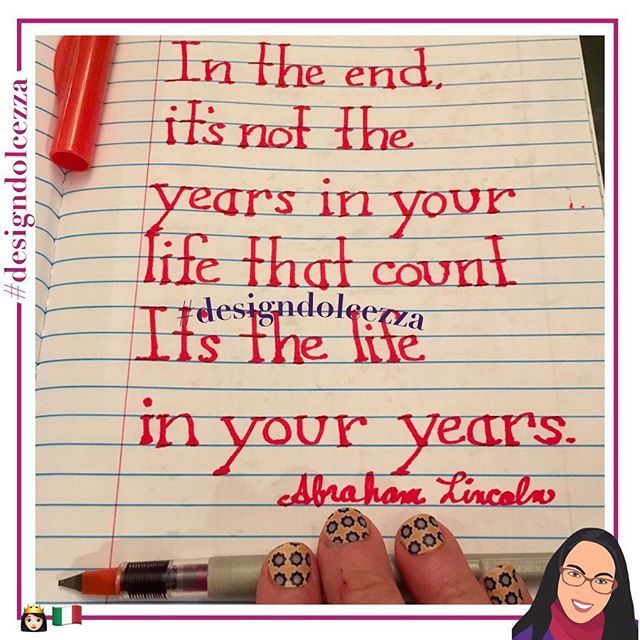 In the end,
it's not the
years in your
life that count
It's the life
in your years.
Abraham Lincoln
#designdolcezza
#designdolcezza